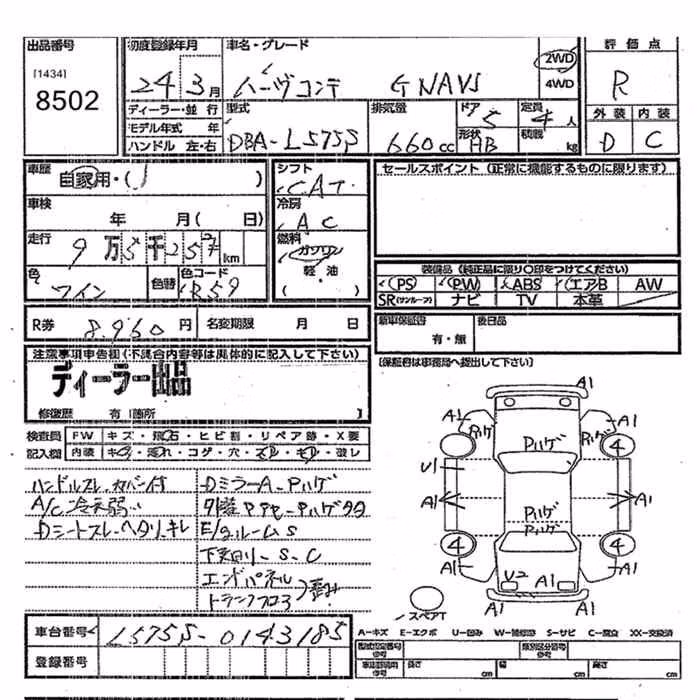 出品番号 初度登録年月 車名・グレード 評価点
[1434]
8502
24 3月 ムーヴコンテ G NAVI 2WD 4WD R
ディーラー・並行 型式 排気量 ドア 定員 外装 内装
モデル年式 年 5 4人
ハンドル 左・右 DBA-L575S 660cc 形状 HB 積載 kg D C
車歴 自家用・( ) シフト セールスポイント(正常に機能するものに限ります)
CAT
車検 冷房
年 月( 日) AC
走行 燃料
9万5千257km ガソリン
軽・油
色 色替 色コード 装備品(純正品に限り〇印をつけてください)
ワイン R59 PS PW ABS エアB AW
SR(サンルーフ) ナビ TV 本革
R券 8,960円 名変期限 月 日 新車保証書 後日品
有・無
注意事項申告欄(不具合内容等は具体的に記入して下さい) [保証書は事務局へ提出して下さい]
ディーラー出品
修復歴 有[箇所 ]
検査員 FW キズ・飛石・ヒビ割・リペア跡・X要
記入欄 内装 キズ・汚れ・コゲ・穴・スレ・キレ・破レ
ハンドルスレ、カバー付 DミラーA-Pハゲ
A/C冷え弱い
Dシートスレ・ヘタリ・キレ E/gルームS
下廻り-S-C
エンドパネル
トランクフロア 歪み
A1
A1 Pハゲ Pハゲ Pハゲ A1
4
U1
A1 A1
Pハゲ
4 4
A1 U2 A1 A1
A1 A1
スペアT
車台番号 L575S-0143185
A-キズ E-エクボ U-凹み W-補修跡 S-サビ C-腐食 XX-交換済
登録番号 型式指定番号 参考 類別区分番号 参考
長さ cm 幅 cm 高さ cm